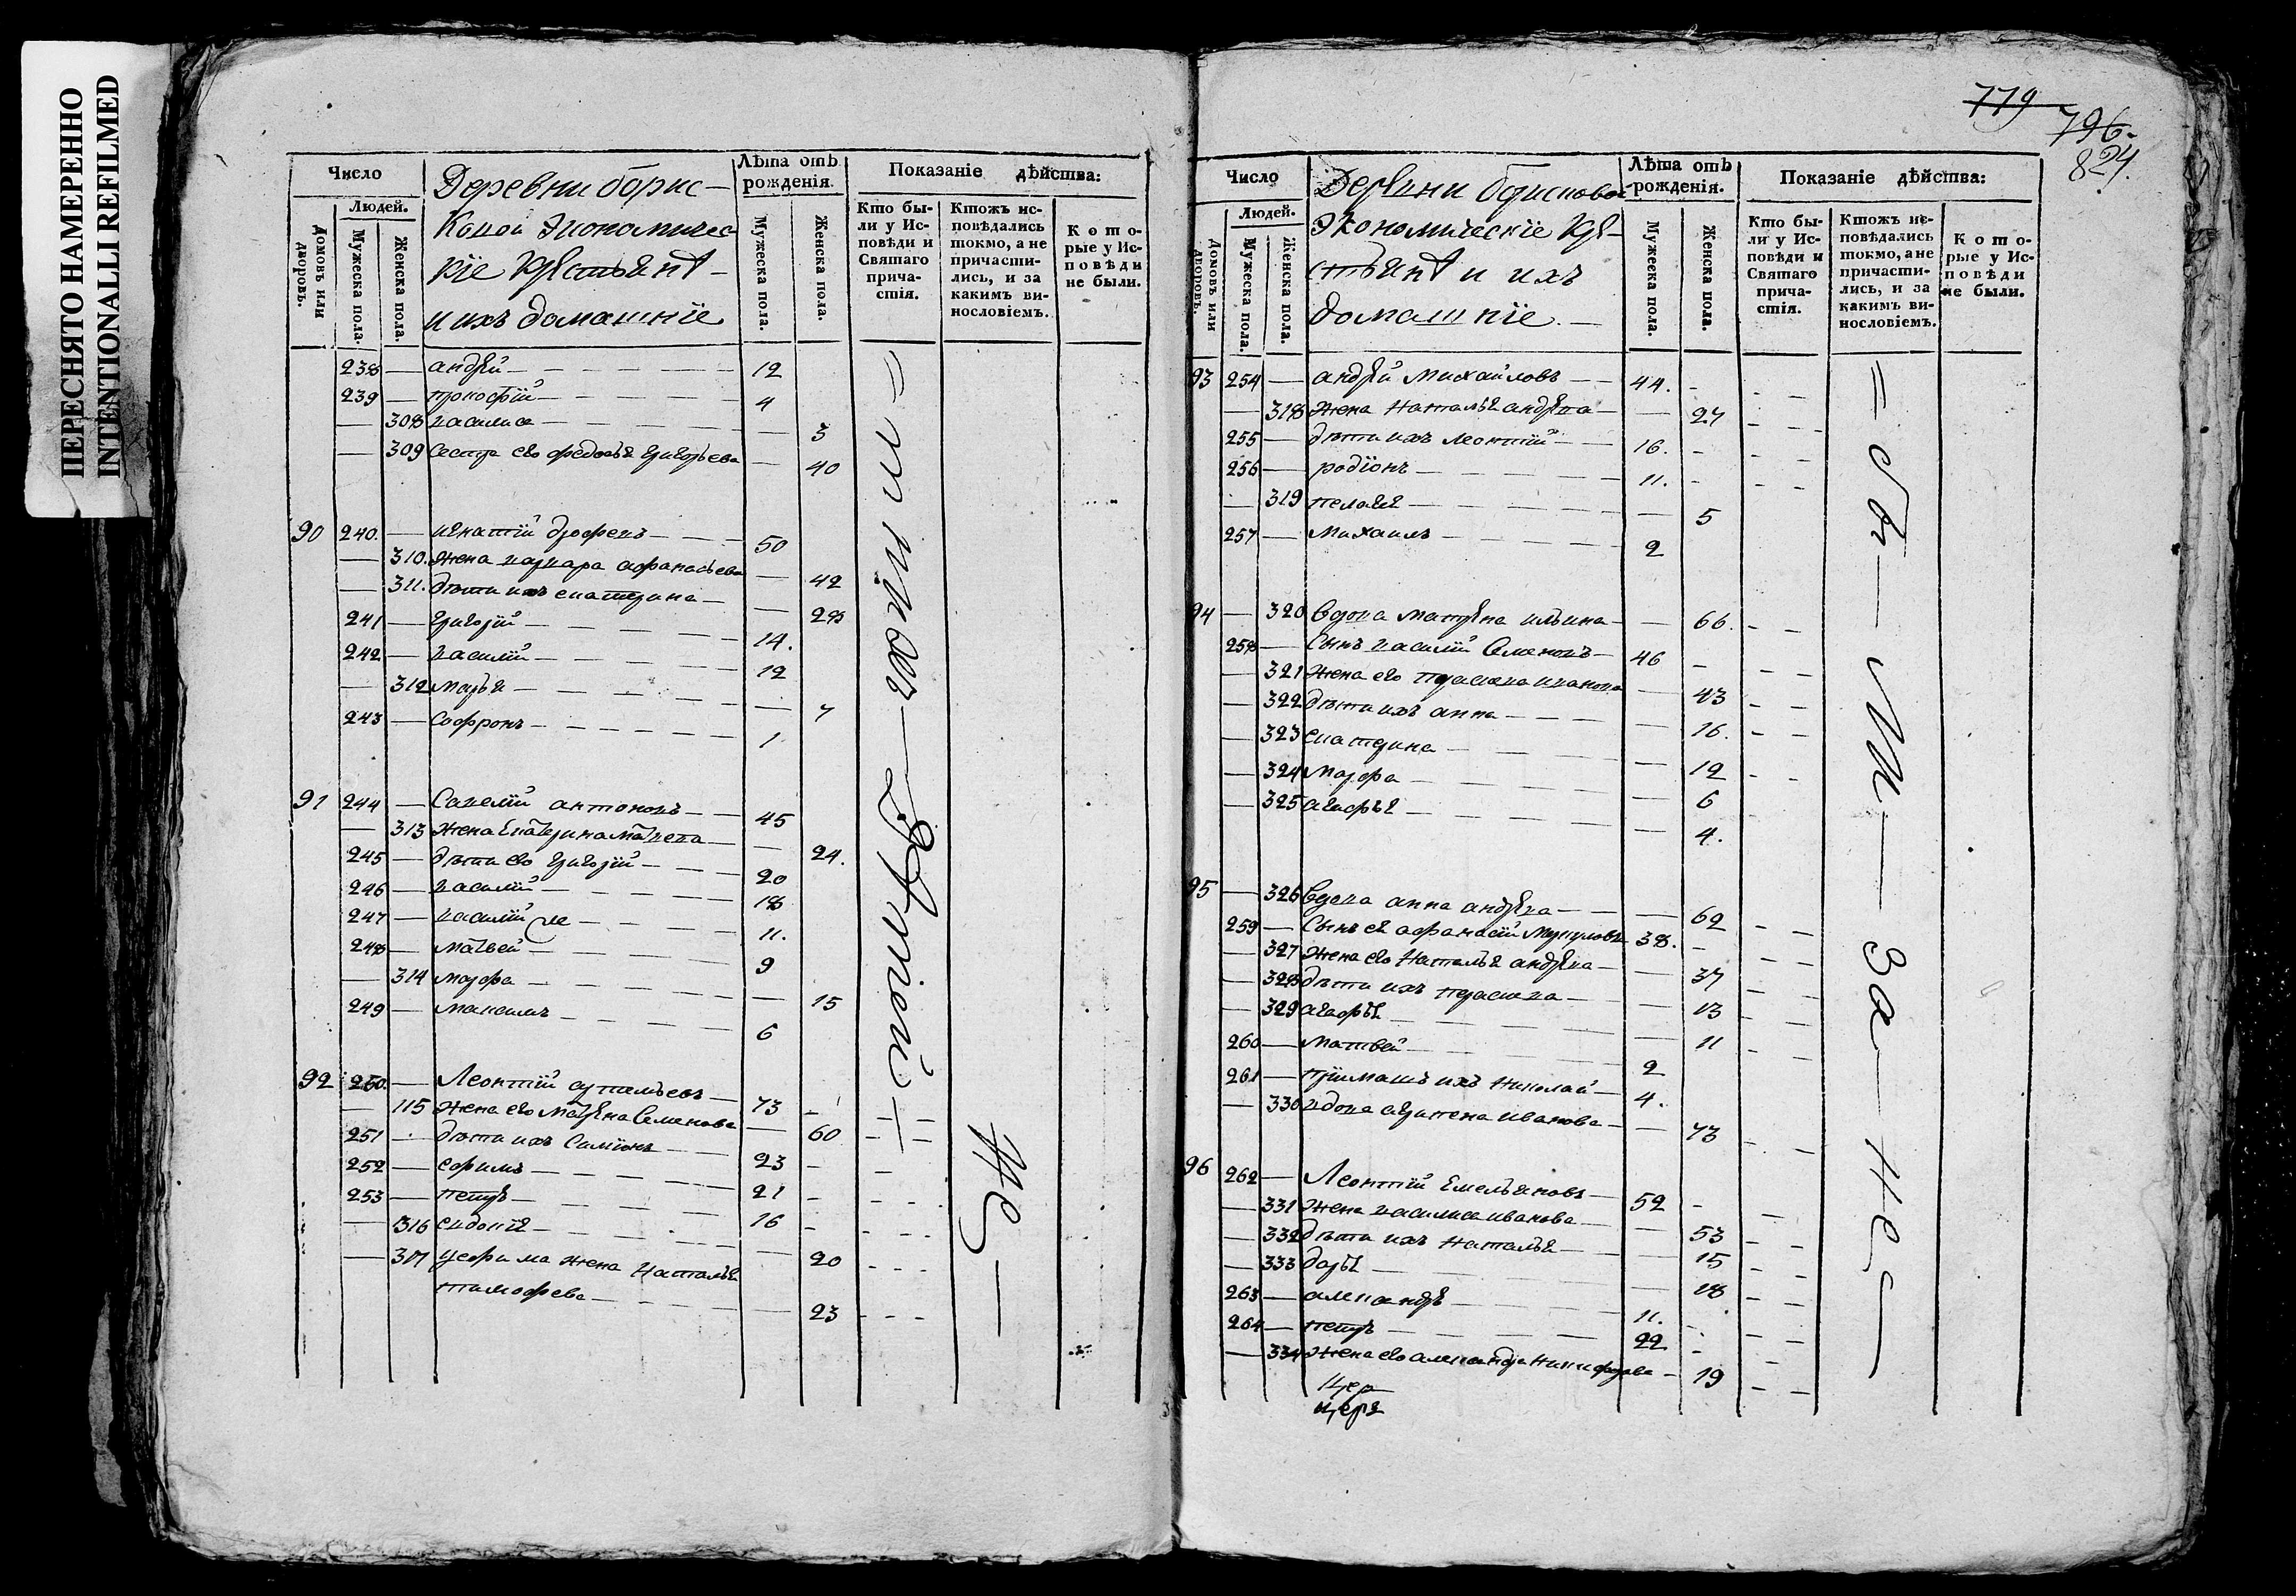 ПЕРЕСНЯТО НАМЕРЕННО
INTENTIONALLI REFILMED
Число
Людей.
Домовъ или дворовъ.
Мужеска пола.
Женска пола.
Деревни борис-
кокой экономичес
кїе крестьянѣ
и ихъ домашнїе
Лѣта отъ рожденія.
Мужеска пола.
Женска пола.
Показаніе дѣйства:
Кто бы-
ли у Ис-
повѣди и
Святаго
прича-
стія.
Ктожъ ис-
повѣдались
токмо, а не
причасти-
лись, и за
какимъ ви-
нословіемъ.
Кото-
рые у Ис-
повѣди
не были.
238 — андрѣй — 12
239 — прокофїй — 4
— 308 василиса — 3
— 309 Сестра его федосья григорьева — 40
90 240. — игнатїй — 50
— 310. жена варвара афанасьева — 42
— 311. дѣти ихъ екатерина — 28
241 — григорїй — 14.
242 — василїй — 12
— 312 марья — 7
243 — софронъ — 1
91 244 — Савелїй антоновъ — 45
— 313 жена Екатерина матвева — 24.
245 — дѣти его григорїй — 20
246 — василїй — 18
247 — василїй же — 11.
248 — матвей — 9
— 314 марфа — 15
249 — максимъ — 6
92 250. — Леонтїй — 73
— 115 жена его матрена Семенова — 60
251 — дѣти ихъ Симїонъ — 23
252 — ефимъ — 21
253 — петръ — 16
— 316 евдокїя — 20
— 317 уефима жена наталья
тимофева — 23
779
796.
824.
Число
Людей.
Домовъ или дворовъ.
Мужеска пола.
Женска пола.
Деревни борисковой
экономическїе кре-
стьянѣ и ихъ
домашнїе. —
Лѣта отъ рожденія.
Мужеска пола.
Женска пола.
Показаніе дѣйства:
Кто бы-
ли у Ис-
повѣди и
Святаго
прича-
стія.
Ктожъ ис-
повѣдались
токмо, а не
причасти-
лись, и за
какимъ ви-
нословіемъ.
Кото-
рые у Ис-
повѣди
не были.
93 254 — андрѣй михайловъ — 44.
— 318 жена наталья андрѣева — 27
255 — дѣти ихъ леонтїй — 16.
256 — родїонъ — 11.
— 319 пелагея — 5
257 — михаилъ — 2
94 — 320 вдова матрѣна ильина — 66.
258 — Сынъ василїй Семеновъ — 46
— 321 жена его прасковя иванова — 43
— 322 дѣти ихъ анна — 16.
— 323 екатерина — 12
— 324 марфа — 6
— 325 агафья — 4.
95 — 326 вдова анна андрѣева — 62
259 — Сынъ ея афанасїй — 38.
— 327 жена его наталья андрѣева — 37
— 328 дѣти ихъ прасковя — 13
— 329 агафья — 11
260 — матвей — 2
261 — прїимашъ ихъ николай — 4.
— 330 вдова агрипена иванова — 73
96 262 — Леонтїй Емельяновъ — 52
— 331 жена василиса иванова — 53
— 332 дѣти ихъ наталья — 15
— 333 дарья — 18
263 — александръ — 11.
264 — петръ — 22
— 334 жена его александра никифорова — 19